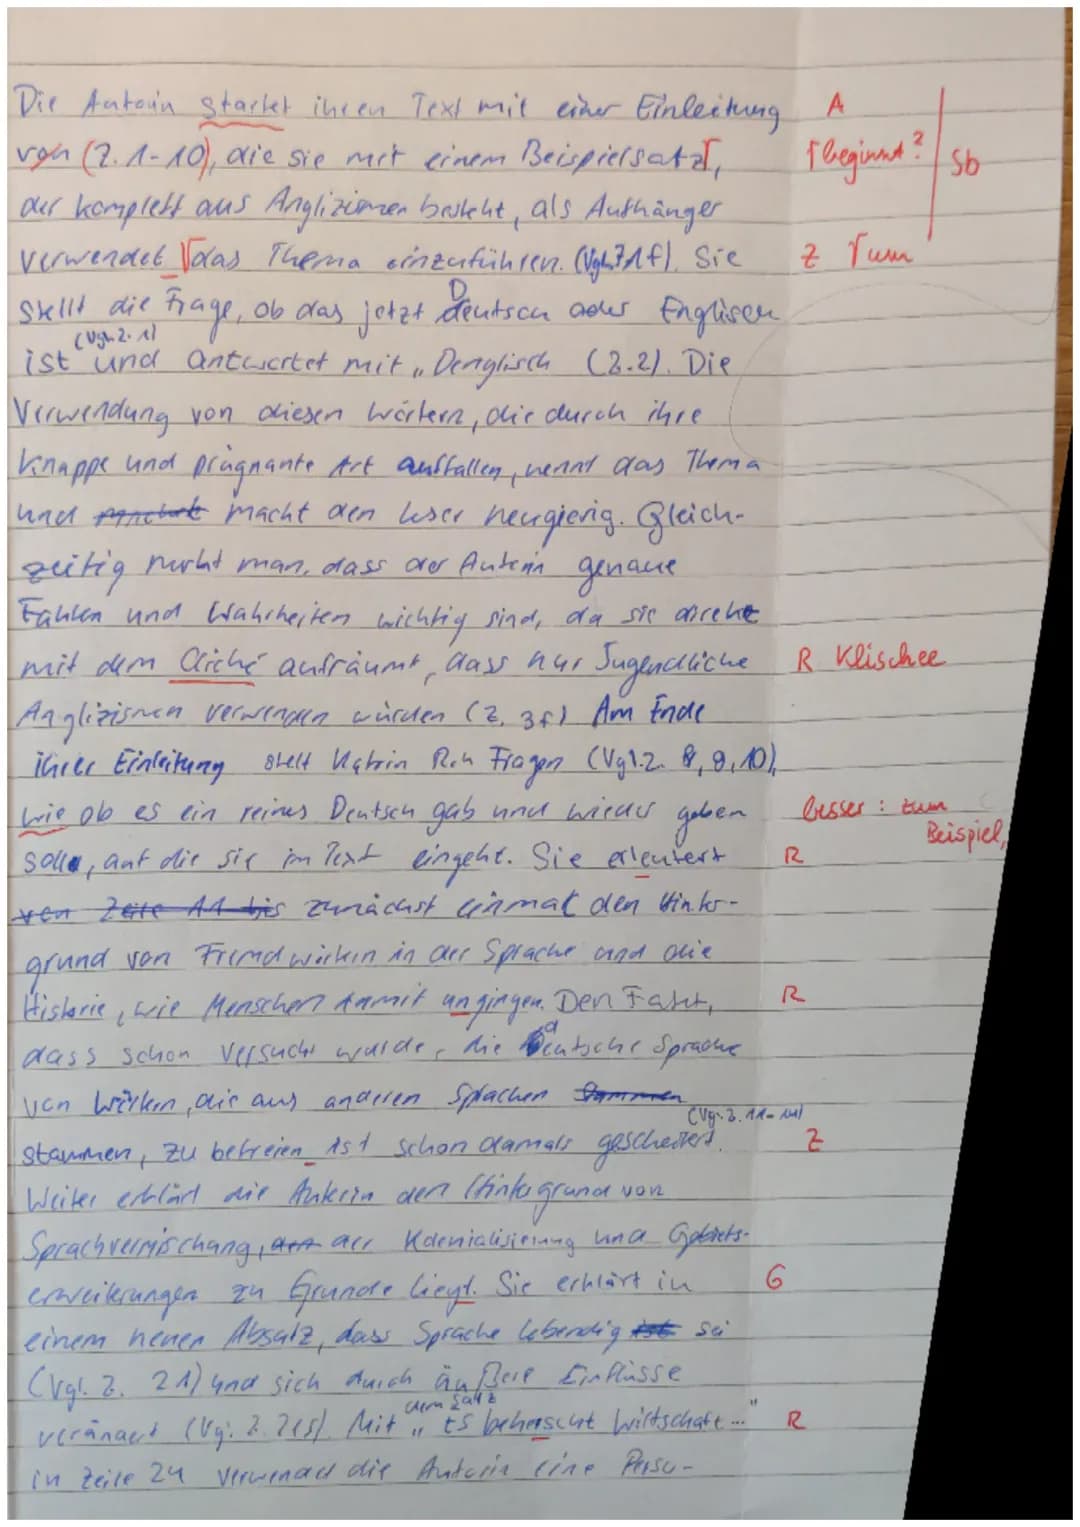 Die Autorin startet ihren Text mit einer Einleitung A
von (Z. 1-10), die sie mit einem Beispielsatz, beginnt? Sb
der komplett aus Anglizismen besteht, als Aufhänger
verwendet das Thema einzuführen. (Vgl. Z 1f). Sie Z um
stellt die Frage, ob das jetzt Deutsch oder Englisch
(Vgl. Z. 1)
ist und antwortet mit „Denglisch (Z.2). Die
Verwendung von diesen Wörtern, die durch ihre
knappe und prägnante Art auffallen, nennt das Thema
und macht den Leser neugierig. Gleich-
zeitig merkt man, dass der Autorin genaue
Fakten und Wahrheiten wichtig sind, da sie direkt
mit dem Cliché aufräumt, dass nur Jugendliche R Klischee
Anglizismen verwenden würden (Z. 3f) Am Ende
ihrer Einleitung stellt Katrin Fragen (Vgl. Z. 8, 9, 10),
wie ob es ein reines Deutsch gab und wieder geben besser: zum Beispiel,
solle, auf die sie im Text eingeht. Sie erleutert R
von Zeile 11 bis zunächst einmal den Hinter-
grund von Fremdwörtern in der Sprache und die
Historie, wie Menschen damit umgingen. Den Fakt, R
dass schon versucht wurde, die deutsche Sprache
von Wörtern, die aus anderen Sprachen stammen
(Vgl. Z. 11-14)
stammen, zu befreien ist schon damals gescheitert. Z
Weiter erklärt die Autorin den Hintergrund von
Sprachvermischung, der Kolonialisierung und Gebiets-
erweiterungen zu Grunde liegt. Sie erklärt in G
einem neuen Absatz, dass Sprache lebendig ist sei
(Vgl. Z. 21) und sich durch äußere Einflüsse
dem Satz
verändert (Vgl. Z. 21f). Mit „Es beherscht Wirtschaft..." R
in Zeile 24 verwendet die Autorin eine Perso-